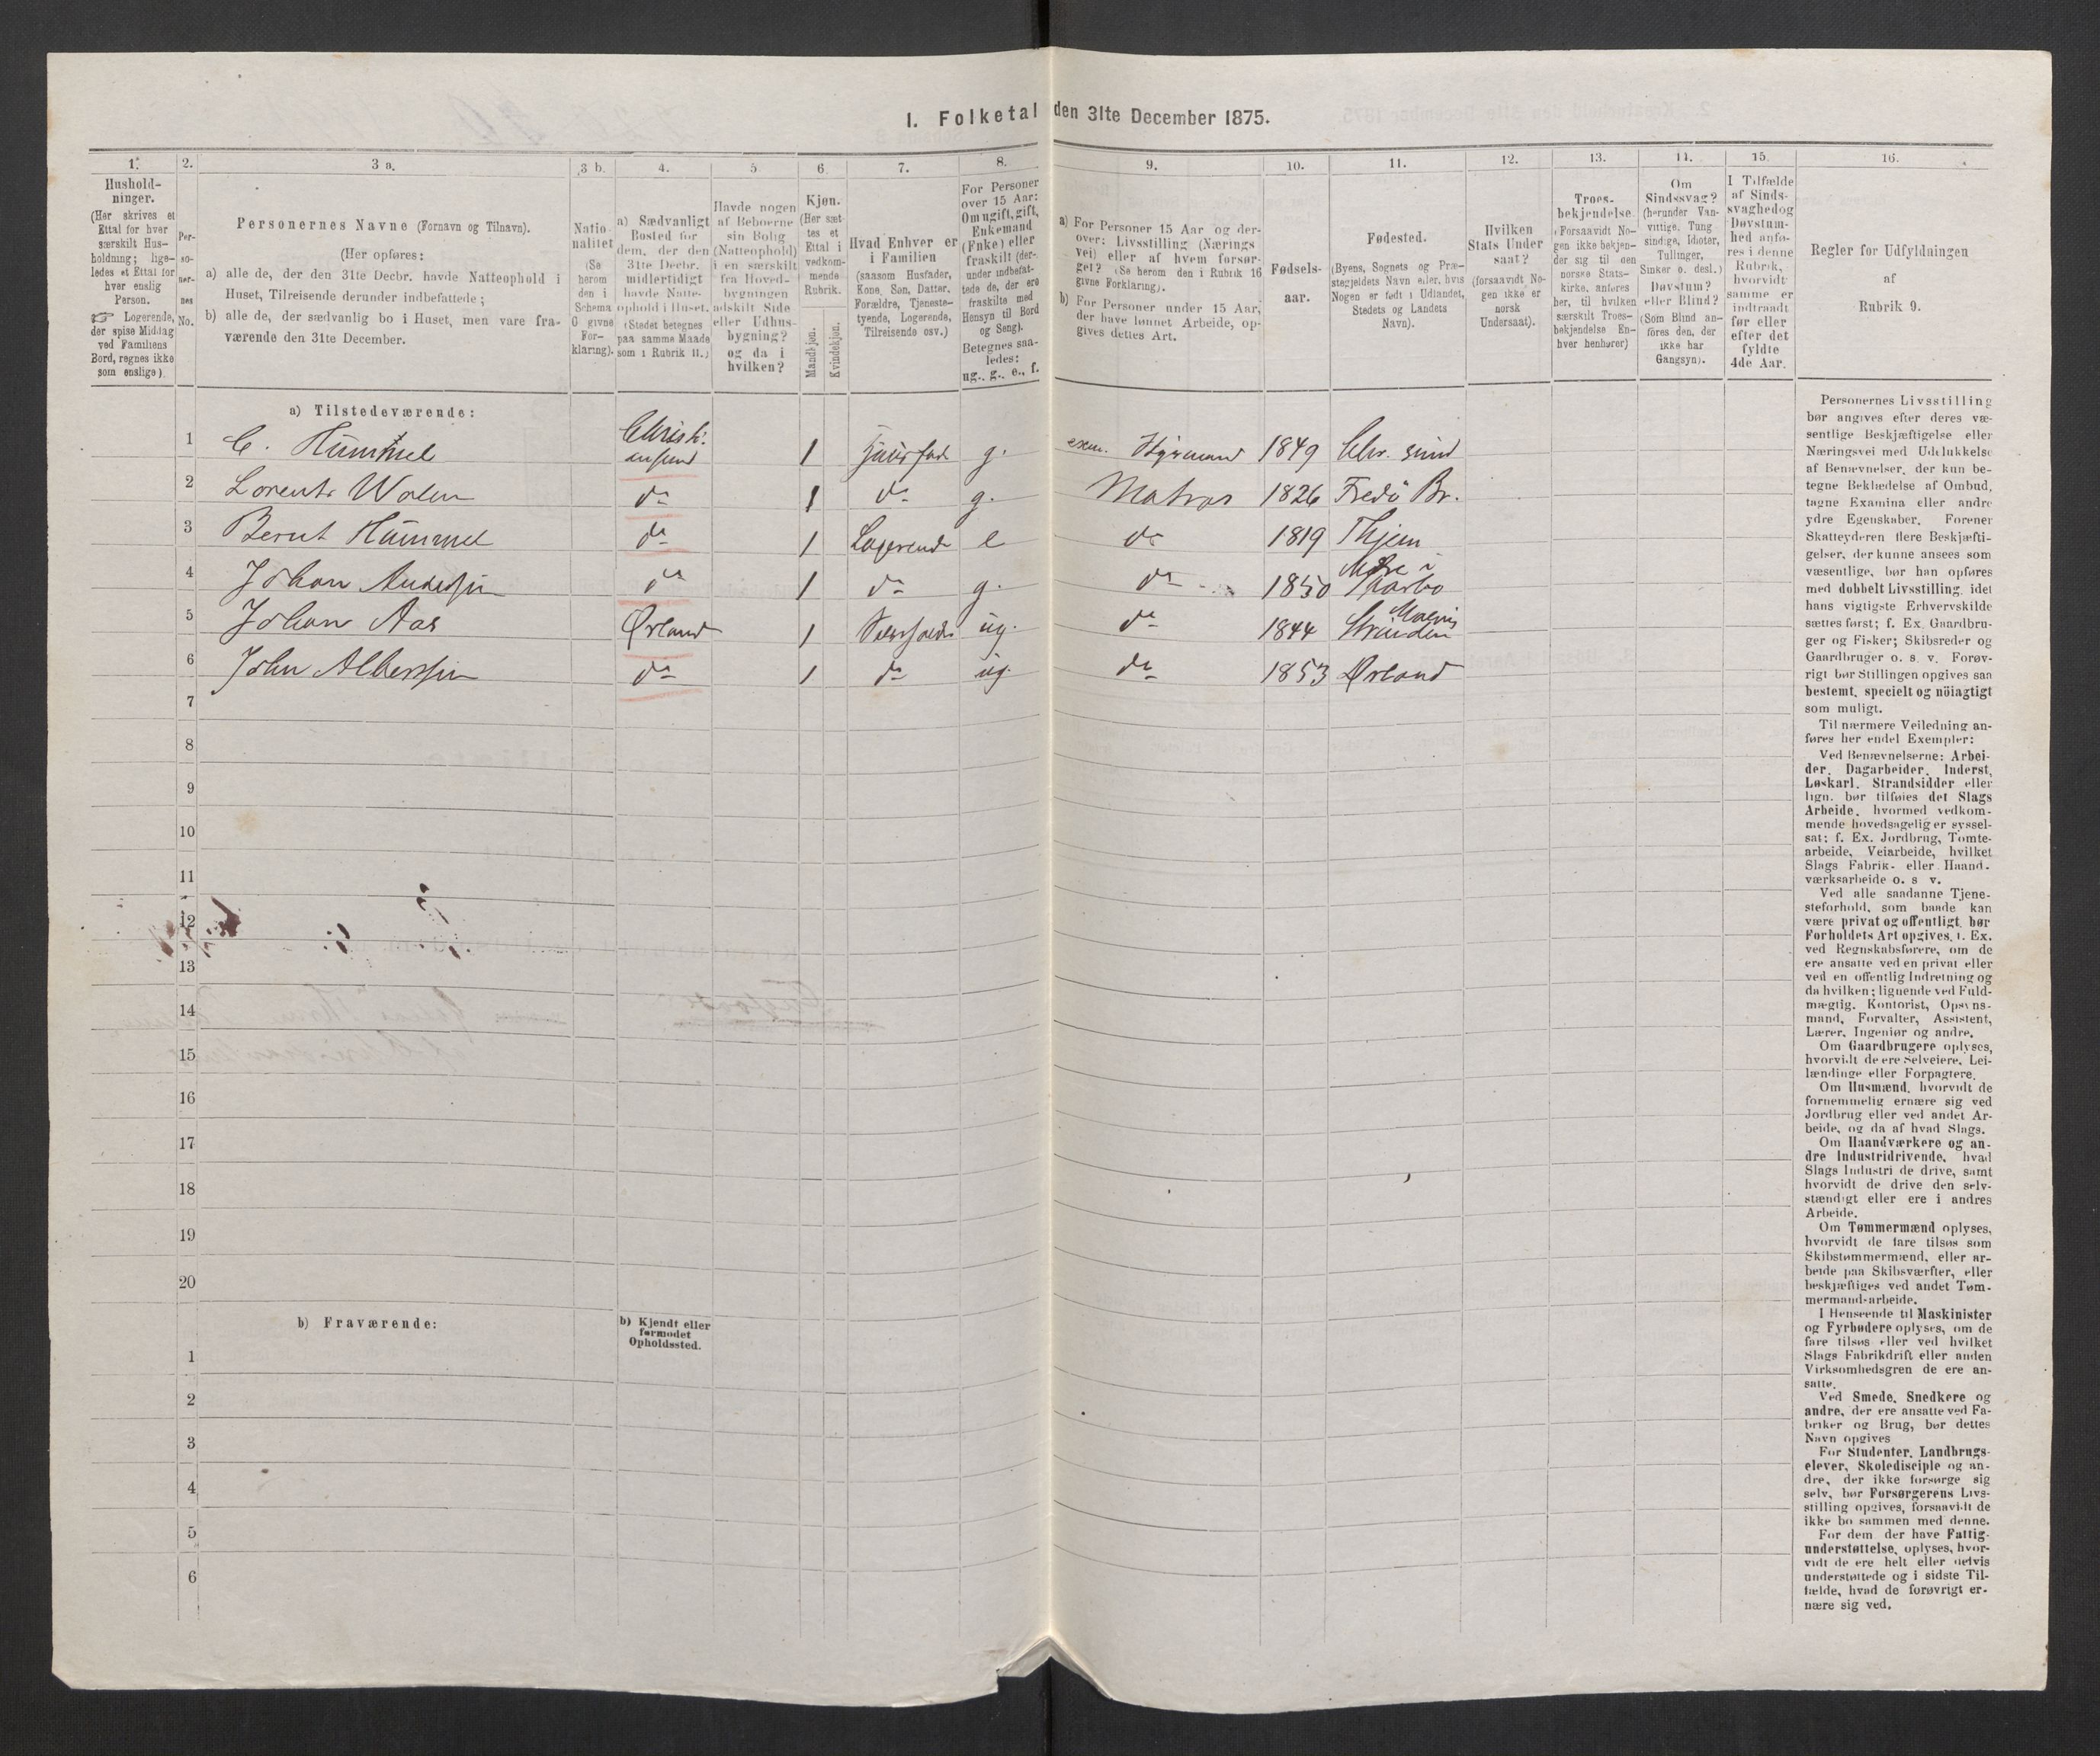 1. Folketal den 31te December 1875.
1.
Hushold-
ninger.
(Her skrives et
Ettal for hver
særskilt Hus-
holdning; lige-
ledes et Ettal for
hver enslig
Person.
☞ Logerende,
der spise Middag
ved Familiens
Bord, regnes ikke
som enslige).
2.
Per-
so-
ner-
nes
No.
3 a.
Personernes Navne (Fornavn og Tilnavn).
(Her opføres:
a) alle de, der den 31te Decbr. havde Natteophold i
Huset, Tilreisende derunder indbefattede;
b) alle de, der sædvanlig bo i Huset, men vare fra-
værende den 31te December.
3 b.
Natio-
nalitet
(Se
herom
den i
Schema
6 givne
For-
klaring).
4.
a) Sædvanligt
Bosted for
dem, der den
31te Decbr.
midlertidigt
havde Natte-
ophold i Huset.
(Stedet betegnes
paa samme Maade
som i Rubrik 11.)
5.
Havde nogen
af Beboerne
sin Bolig
(Natteophold)
i en særskilt
fra Hoved-
bygningen
adskilt Side
eller Udhus-
bygning?
og da i
hvilken?
6.
Kjøn.
(Her sæt-
tes et
Ettal i
vedkom-
mende
Rubrik.
Mandkjøn.
Kvindekjøn.
7.
Hvad Enhver er
i Familien
(saasom Husfader,
Kone, Søn, Datter,
Forældre, Tjeneste-
tyende, Logerende,
Tilreisende osv.)
8.
For Personer
over 15 Aar:
Om ugift, gift,
Enkemand
(Enke) eller
fraskilt (der-
under indbefat-
tede de, der ere
fraskilte med
Hensyn til Bord
og Seng).
Betegnes saa-
ledes:
ug., g., e., f.
9.
a) For Personer 15 Aar og der-
over: Livsstilling (Nærings
vei) eller af hvem forsør-
get? (Se herom den i Rubrik 16
givne Forklaring).
b) For Personer under 15 Aar,
der have lønnet Arbeide, op-
gives dettes Art.
10.
Fødsels-
aar.
11.
Fødested.
(Byens, Sognets og Præ-
stegjeldets Navn eller, hvis
Nogen er født i Udlandet,
Stedets og Landets
Navn).
12.
Hvilken
Stats Under
saat?
(forsaavidt No-
gen ikke er
norsk
Undersaat).
13.
Troes-
bekjendelse.
(Forsaavidt No-
gen ikke bekjen-
der sig til den
norske Stats-
kirke, anføres
her, til hvilken
særskilt Troes-
bekjendelse En-
hver henhører)
14.
Om
Sindssvag?
(herunder Van-
vittige, Tung
sindige, Idioter,
Tullinger,
Sinker o. desl.)
Døvstum?
eller Blind?
(Som Blind an-
føres den, der
ikke har
Gangsyn).
15.
I Tilfælde
af Sinds-
svaghed og
Døvstum-
hed anfø-
res i denne
Rubrik,
hvorvidt
samme er
indtraadt
før eller
efter det
fyldte
4de Aar.
16.
Regler for Udfyldningen
af
Rubrik 9.
a) Tilstedeværende:
1 C. Hummel Christi-ansund 1 g. exm. Styrmand 1849 Chr. sund
2 Lorents Wolen do 1 do g. Matros 1826 Fredö Br.
3 Bernt Hummel do 1 Logerende e do 1819 Thjem
4 Johan Anderssen do 1 do g. do 1850
5 Johan Aas Ørland 1 ug. do 1844 Strinden
6 John Alberssen do 1 do ug. do 1853 Ørland
7
8
9
10
11
12
13
14
15
16
17
18
19
20
b) Fraværende:
b) Kjendt eller
formodet
Opholdssted.
1
2
3
4
5
6
Personernes Livsstilling
bør angives efter deres væ-
sentlige Beskjæftigelse eller
Næringsvei med Udelukkelse
af Benævnelser, der kun be-
tegne Beklædelse af Ombud,
tagne Examina eller andre
ydre Egenskaber. Forener
Skatteyderen flere Beskjæfti-
gelser, der kunne ansees som
væsentlige, bør han opføres
med dobbelt Livsstilling, idet
hans vigtigste Erhvervskilde
sættes først; f. Ex. Gaardbru-
ger og Fisker; Skibsreder og
Gaardbruger o. s. v. Forøv-
rigt bør Stillingen opgives saa
bestemt, specielt og nöiagtigt
som muligt.
Til nærmere Veiledning an-
føres her endel Exempler:
Ved Benævnelserne: Arbei-
der, Dagarbeider, Inderst,
Løskarl, Strandsidder eller
lign. bør tilføies det Slags
Arbeide, hvormed vedkom-
mende hovedsagelig er syssel-
sat; f. Ex. Jordbrug, Tomte-
arbeide, Veiarbeide, hvilket
Slags Fabrik- eller Haand-
værksarbeide o. s v.
Ved alle saadanne Tjene-
steforhold, som baade kan
være privat og offentligt, bør
Forholdets Art opgives, f. Ex.
ved Regnskabsførere, om de
ere ansatte ved en privat eller
ved en offentlig Indretning og
da hvilken; lignende ved Fuld-
mægtig, Kontorist, Opsyns-
mand, Forvalter, Assistent,
Lærer, Ingeniør og andre.
Om Gaardbrugere oplyses,
hvorvidt de ere Selveiere, Lei-
lændinge eller Forpagtere.
Om Husmænd, hvorvidt de
fornemmelig ernære sig ved
Jordbrug eller ved andet Ar-
beide, og da af hvad Slags.
Om Haandværkere og an-
dre Industridrivende, hvad
Slags Industri de drive, samt
hvorvidt de drive den selv-
stændigt eller ere i andres
Arbeide.
Om Tømmermænd oplyses,
hvorvidt de fare tilsøs som
Skibstømmermænd, eller ar-
beide paa Skibsværfter, eller
beskjæftiges ved andet Tøm-
mermandsarbeide.
I Henseende til Maskinister
og Fyrbødere oplyses, om de
fare tilsøs eller ved hvilket
Slags Fabrikdrift eller anden
Virksomhedsgren de ere an-
satte.
Ved Smede, Snedkere og
andre, der ere ansatte ved Fa-
briker og Brug, bør dettes
Navn opgives
For Studenter, Landbrugs-
elever, Skoledisciple og an-
dre, der ikke forsørge sig
selv, bør Forsørgerens Livs-
stilling opgives, forsaavidt de
ikke bo sammen med denne.
For dem der have Fattig-
understøttelse, oplyses, hvor-
vidt de ere helt eller delvis
understøttede og i sidste Til-
fælde, hvad de forøvrigt er-
nære sig ved.